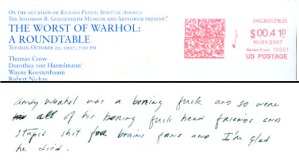 ON THE OCCASION OF RICHARD PRINCE: SPIRITUAL AMERICA
THE SOLOMON R. GUGGENHEIM MUSEUM AND ARTFORUM PRESENT:
THE WORST OF WARHOL:
A ROUNDTABLE
TUESDAY, OCTOBER 23, 2007, 7:00 PM
Thomas Crow
Dorothea von Hantelmann
Wayne Koestenbaum
Robert Nickas
$00.41
10/01/2007
US POSTAGE
Andy Warhol was a boring fuck and so were
all of his boring fuck head friends and
stupid shit for brains fans and I'm glad
he died.